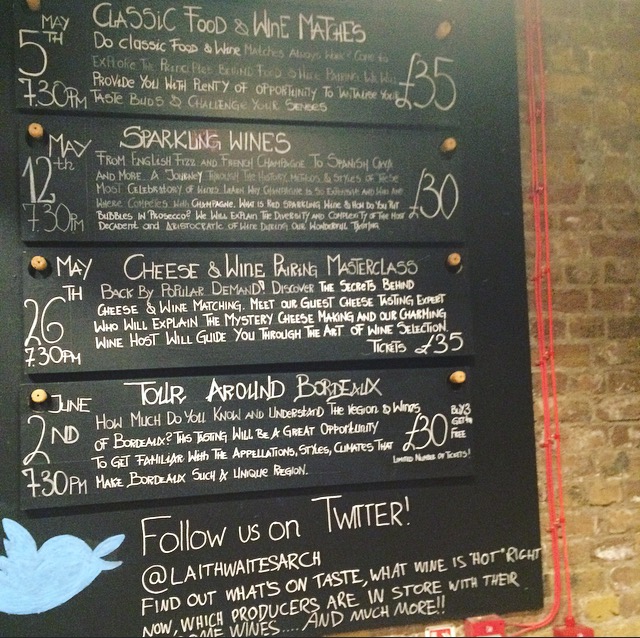 MAY
5TH
7.30PM
CLASSIC FOOD & WINE MATCHES
DO CLASSIC FOOD & WINE MATCHES ALWAYS WORK? COME TO
EXPLORE THE PRINCIPLES BEHIND FOOD & WINE PAIRING. WE WILL
PROVIDE YOU WITH PLENTY OF OPPORTUNITY TO TANTALISE YOUR
TASTE BUDS & CHALLENGE YOUR SENSES
£35
MAY
12th
7.30PM
SPARKLING WINES
FROM ENGLISH FIZZ AND FRENCH CHAMPAGNE TO SPANISH CAVA
AND MORE. A JOURNEY THROUGH THE HISTORY, METHODS & STYLES OF THESE
MOST CELEBRATORY OF WINES. LEARN WHY CHAMPAGNE IS SO EXPENSIVE AND WHO AND
WHERE COMPETES WITH CHAMPAGNE. WHAT IS RED SPARKLING WINE & HOW DO YOU PUT
BUBBLES IN PROSECCO? WE WILL EXPLAIN THE DIVERSITY AND COMPLEXITY OF THE MOST
DECADENT AND ARISTOCRATIC OF WINE DURING OUR WONDERFUL TASTING
£30
MAY
26TH
7.30PM
CHEESE & WINE PAIRING MASTERCLASS
BACK BY POPULAR DEMAND! DISCOVER THE SECRETS BEHIND
CHEESE & WINE MATCHING. MEET OUR GUEST CHEESE TASTING EXPERT
WHO WILL EXPLAIN THE MYSTERY CHEESE MAKING AND OUR CHARMING
WINE HOST WILL GUIDE YOU THROUGH THE ART OF WINE SELECTION.
TICKETS £35
JUNE
2ND
7.30PM
TOUR AROUND BORDEAUX
HOW MUCH DO YOU KNOW AND UNDERSTAND THE REGION & WINES
OF BORDEAUX? THIS TASTING WILL BE A GREAT OPPORTUNITY
TO GET FAMILIAR WITH THE APPELLATIONS, STYLES, CLIMATES THAT
MAKE BORDEAUX SUCH A UNIQUE REGION.
£30
BUY 3
GET
FREE
LIMITED NUMBER OF TICKETS!
FOLLOW US ON TWITTER!
@LAITHWAITESARCH
FIND OUT WHAT'S ON TASTE, WHAT WINE IS "HOT" RIGHT
NOW, WHICH PRODUCERS ARE IN STORE WITH THEIR
WINES.... AND MUCH MORE!!